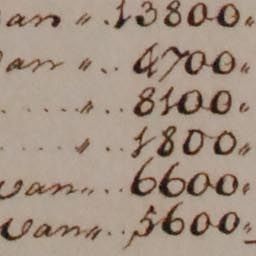 van „ . 13800„
van „ . . 4700„
. . . . . „ . . 8100„
. . . . . „ . . 1800„
van „ . . 6600„
van „ . . 5600„